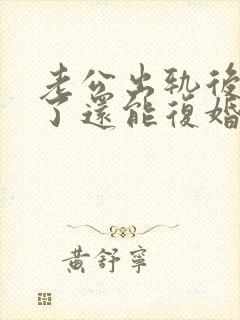 老公出軌後
了還能復婚
黃舒寧